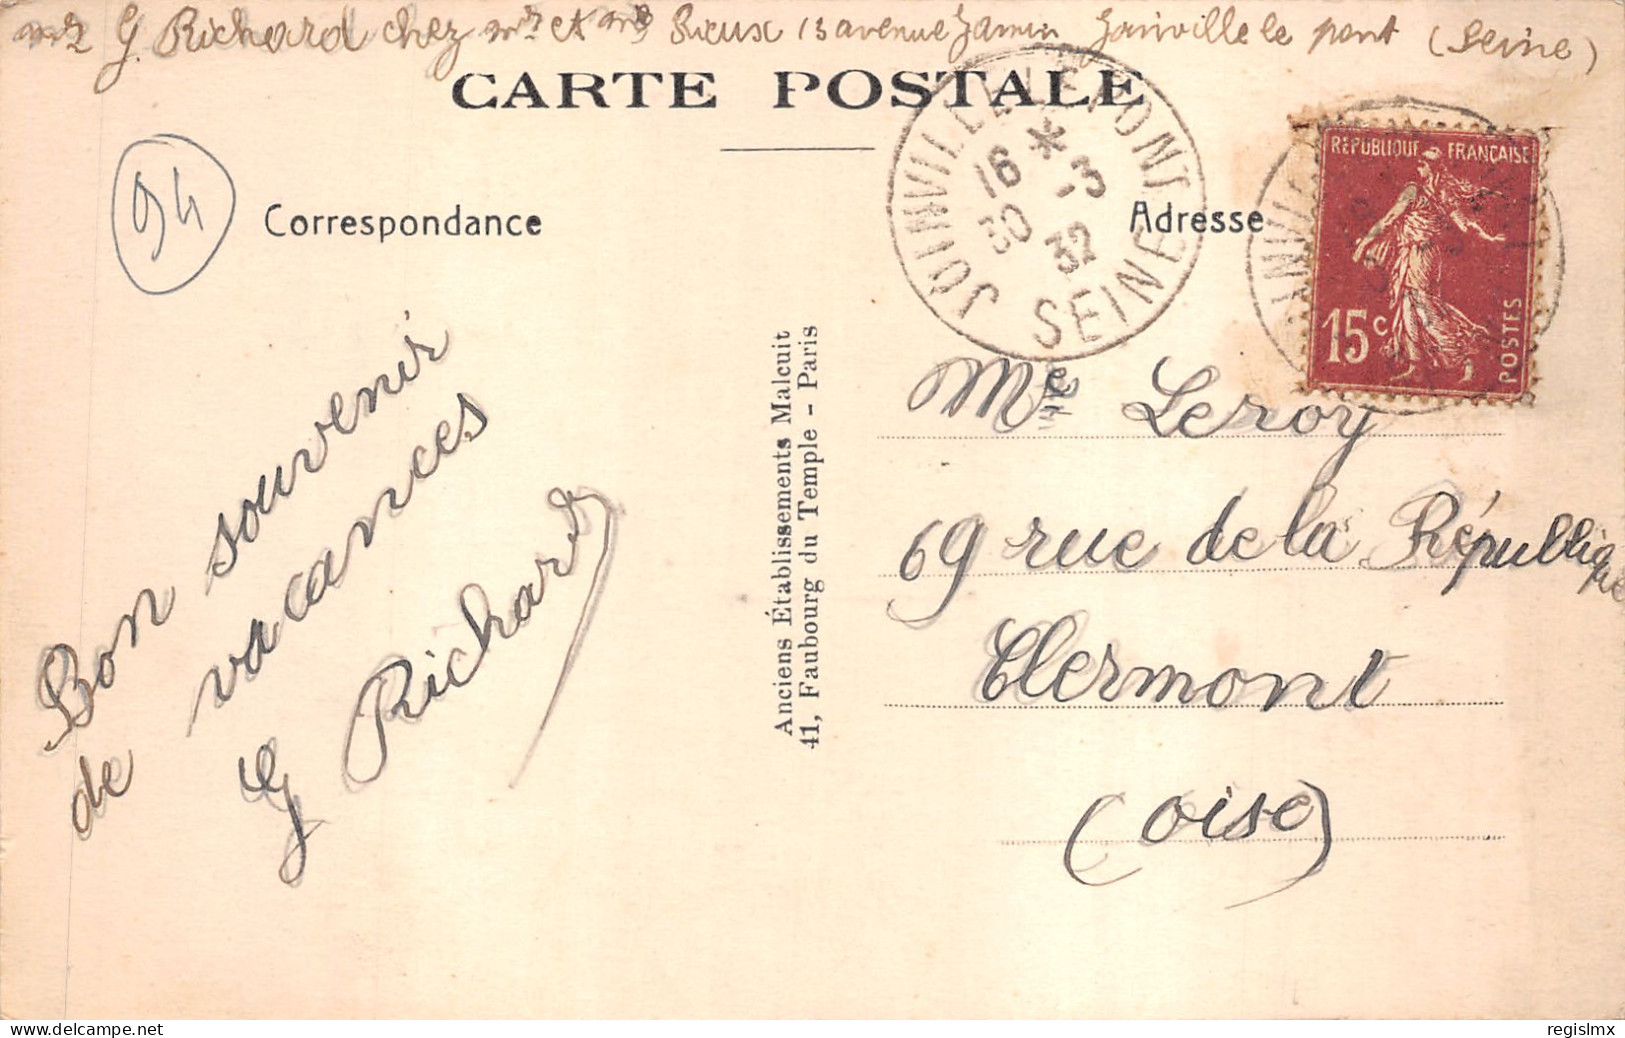 Mr G. Richard chez Mr et Mme Rieux 13 avenue Jamin Joinville le pont (Seine)
CARTE POSTALE
94
Correspondance
Adresse
JOINVILLE LE PONT
16 * -3
30 32
SEINE
RÉPUBLIQUE FRANÇAISE
15c
POSTES
Bon souvenir
de vacances
G Richard
Anciens Établissements Malcuit
41, Faubourg du Temple - Paris
Me Leroy
69 rue de la Républlique
Clermont
(Oise)
regislmx